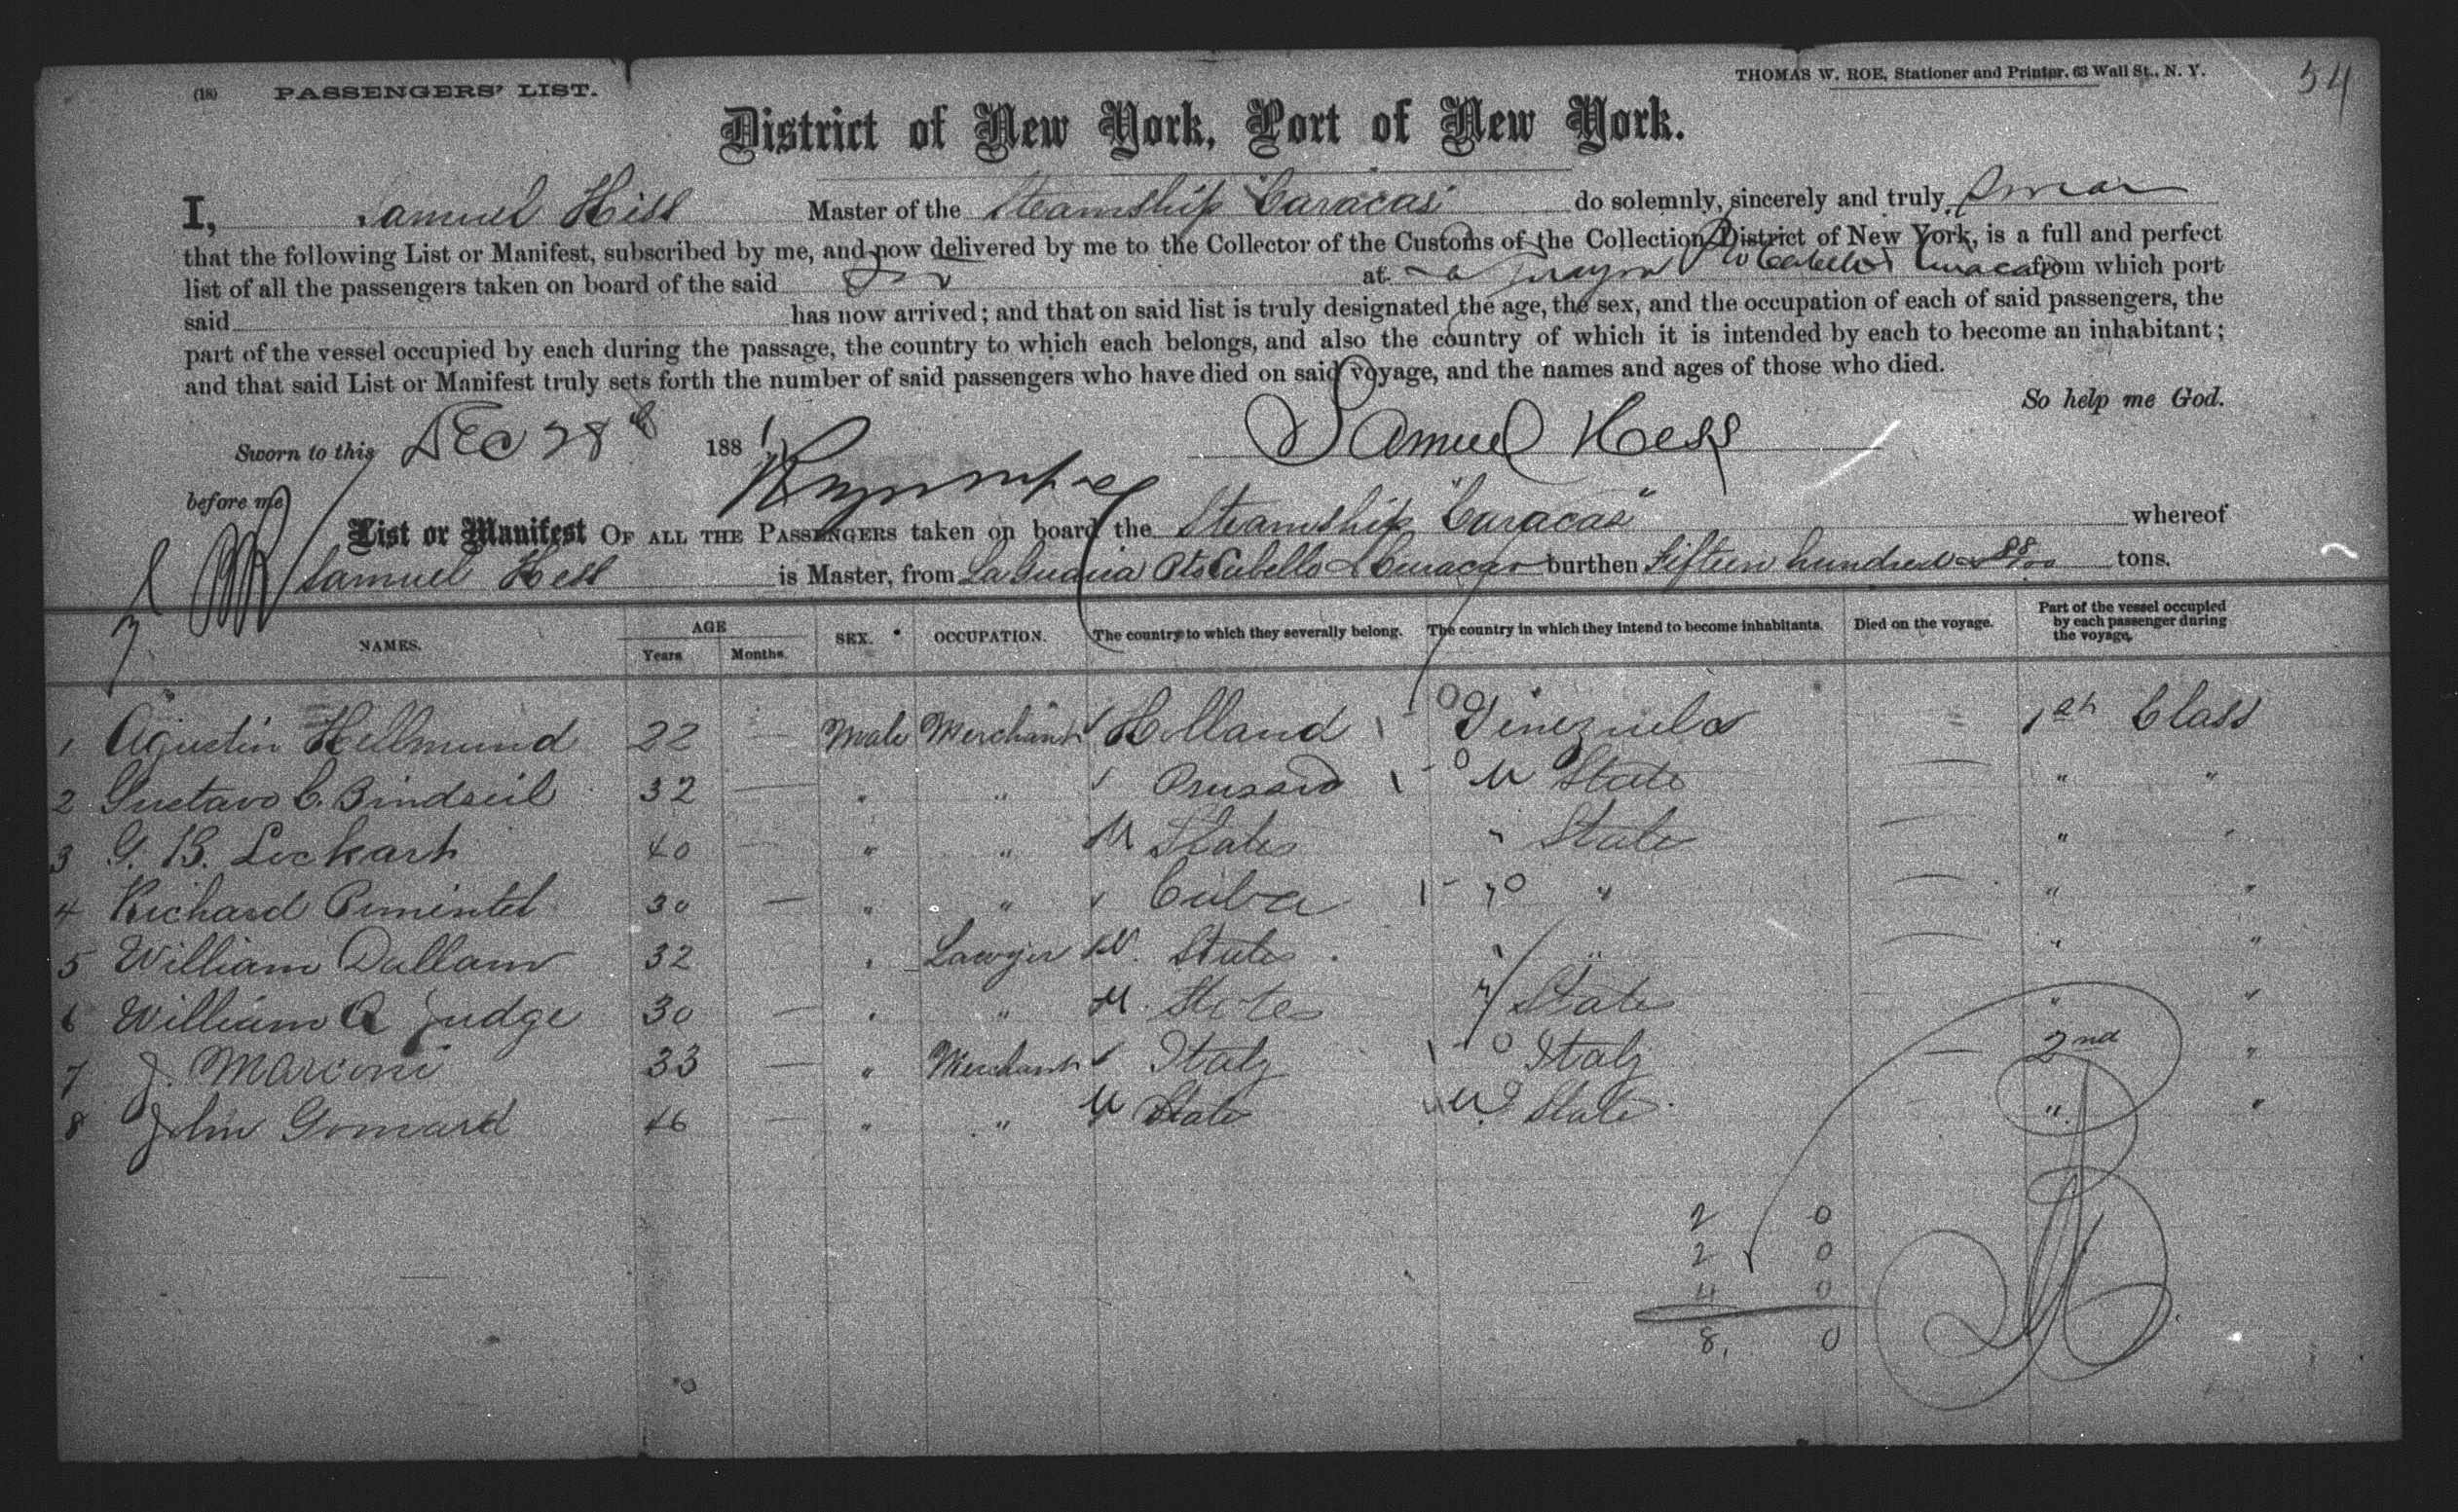 (18) PASSENGERS' LIST.
THOMAS W. ROE, Stationer and Printer, 63 Wall St., N. Y.
54
District of New York, Port of New York.
I, Samuel Hess Master of the Steamship "Caracas" do solemnly, sincerely and truly swear
that the following List or Manifest, subscribed by me, and now delivered by me to the Collector of the Customs of the Collection District of New York, is a full and perfect
list of all the passengers taken on board of the said at Curacao from which port
said has now arrived; and that on said list is truly designated the age, the sex, and the occupation of each of said passengers, the
part of the vessel occupied by each during the passage, the country to which each belongs, and also the country of which it is intended by each to become an inhabitant;
and that said List or Manifest truly sets forth the number of said passengers who have died on said voyage, and the names and ages of those who died.
So help me God.
Sworn to this DEC 28 1881 Samuel Hess
before me
List or Manifest OF ALL THE PASSENGERS taken on board the Steamship "Caracas" whereof
Samuel Hess is Master, from La Guaira Pto Cabello & Curacao burthen Fifteen hundred & 88/100 tons.
NAMES. AGE Years Months. SEX. OCCUPATION. The country to which they severally belong. The country in which they intend to become inhabitants. Died on the voyage. Part of the vessel occupied by each passenger during the voyage.
1 Agustin Hellmund 22 — Male Merchant Holland Venezuela 1st Class
2 Gustavo C. Bindseil 32 — " " Prussia U State — " "
3 G. B. Lockart 40 — " " U States " State — " "
4 Richard Pimintel 30 — " " Cuba " " — " "
5 William Dallam 32 " Lawyer U. States " " — " "
6 William Q Judge 30 — " " U. States " State " "
7 J. Marconi 33 — " Merchant Italy Italy — 2nd "
8 John Gomard 46 — " " U State U. State " "
2 0
2 0
4 0
8, 0